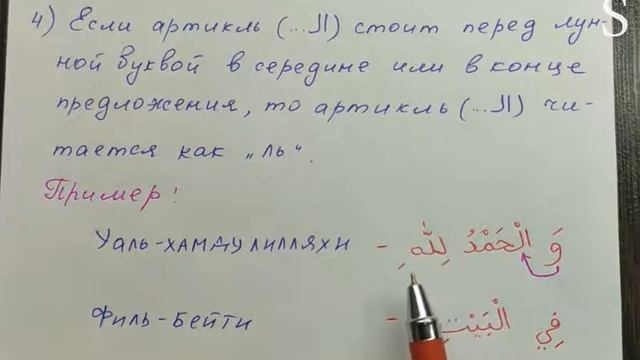 4) Если артикль (...ال) стоит перед лун-
ной буквой в середине или в конце
предложения, то артикль (...ال) чи-
тается как „ль“.
Пример:
Уаль-хамдулилляхи - وَ الْحَمْدُ لِلّٰهِ
Филь-Бейти - فِي الْبَيْتِ
S